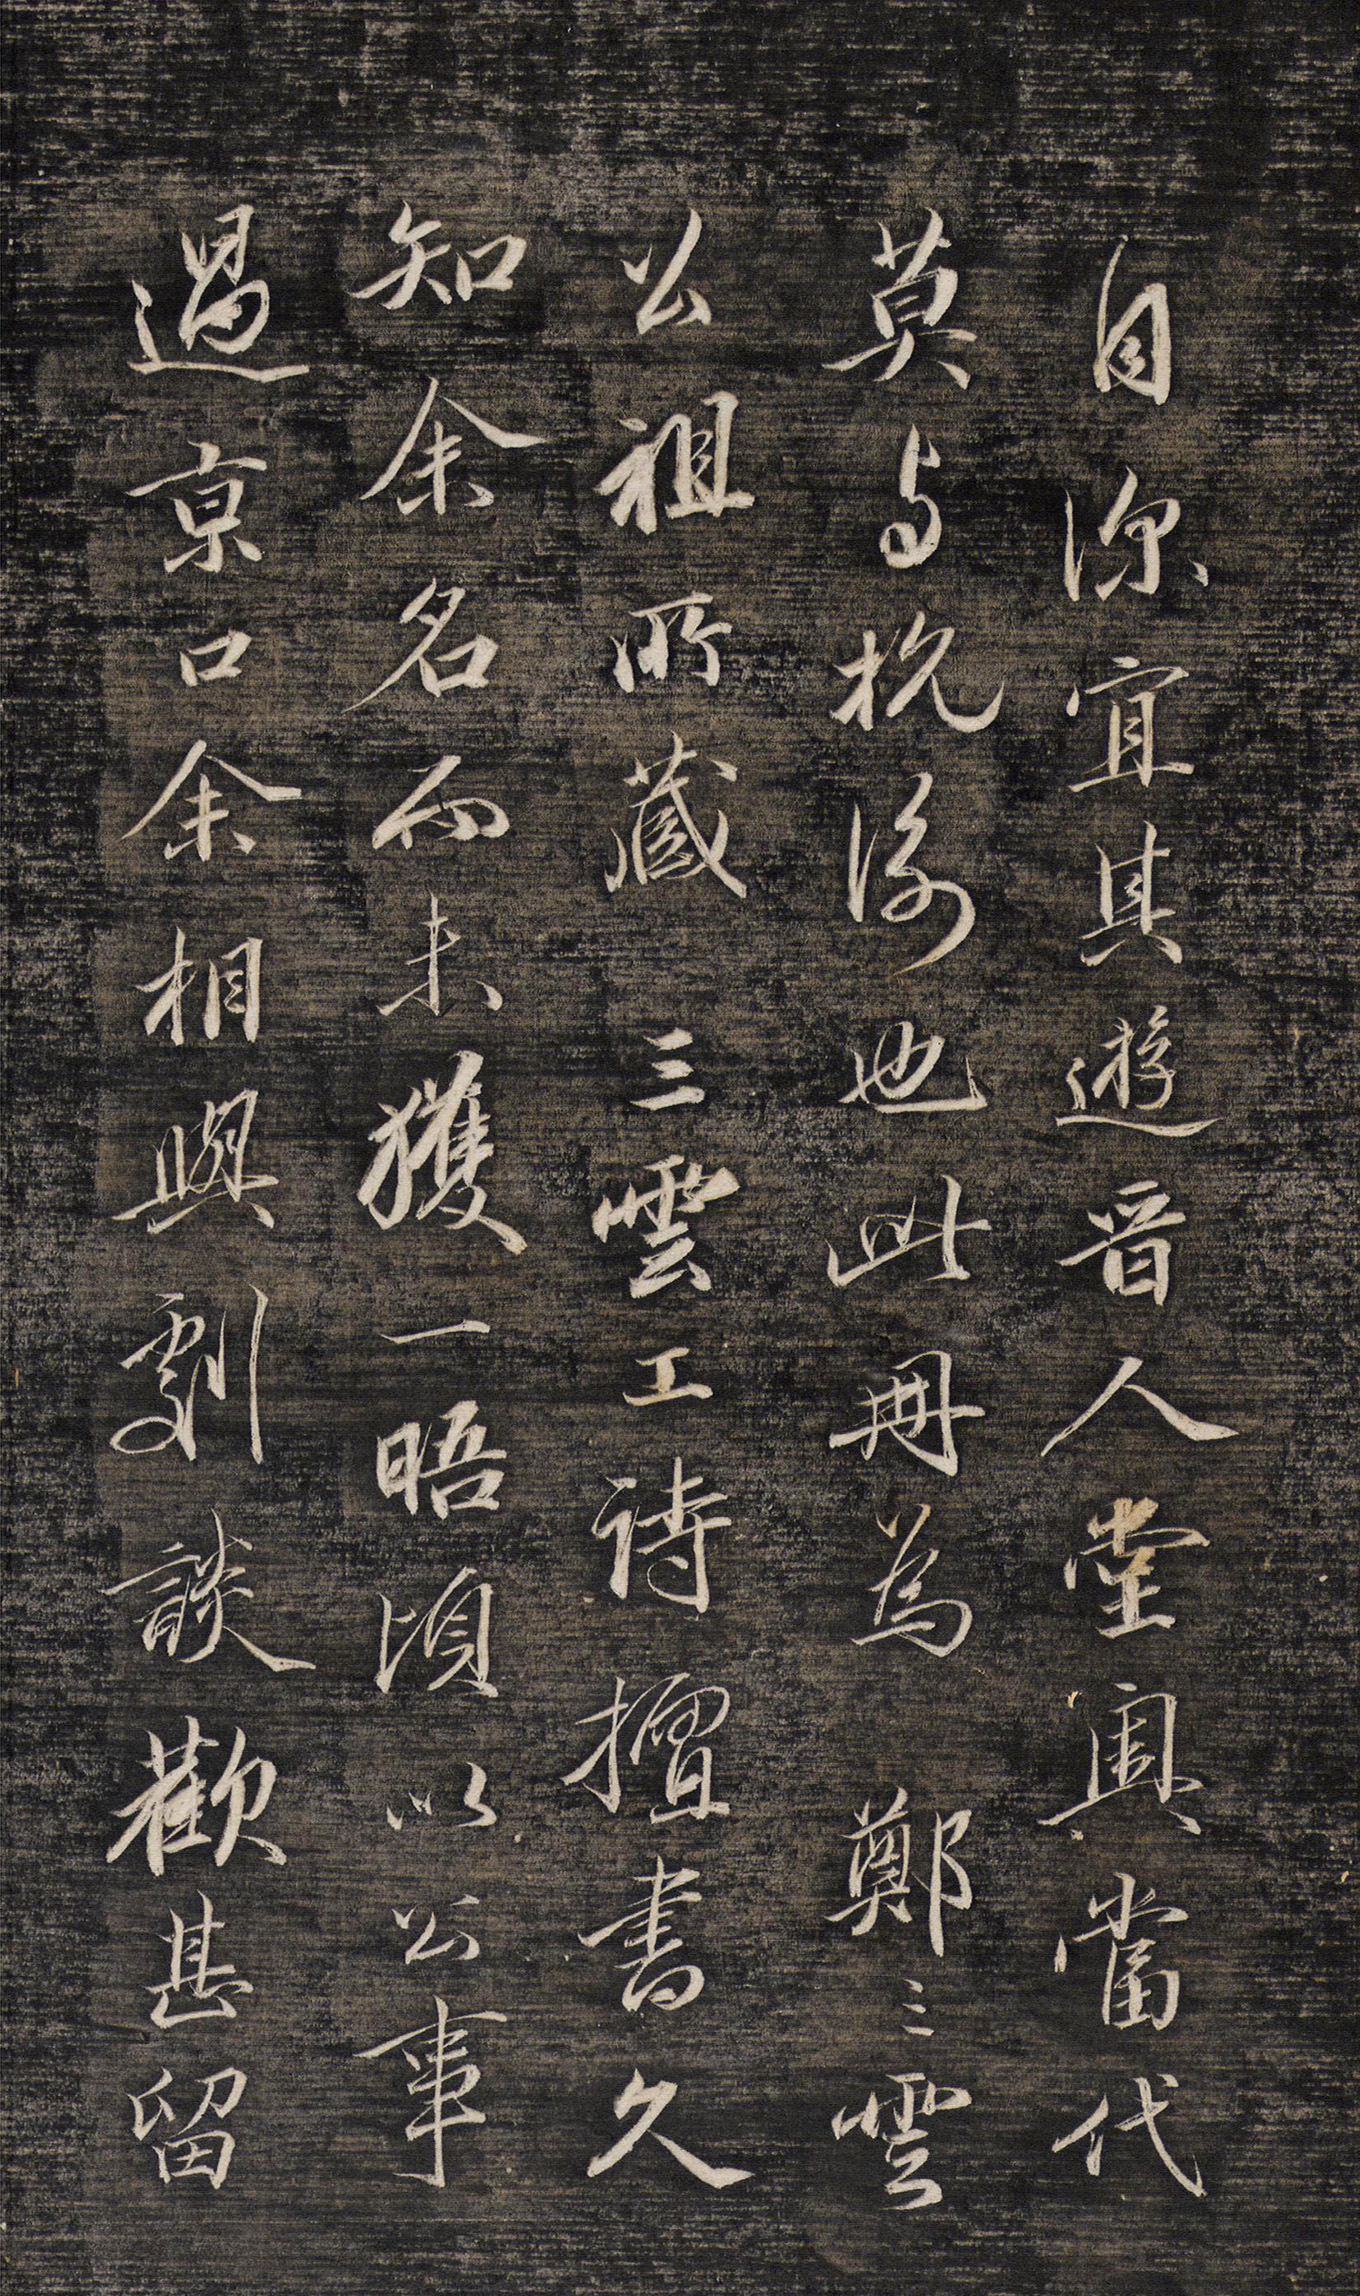 自深宜其遊晉人堂奧當代
莫与抗衡也此冊為鄭三雲
公祖所藏三雲工詩擅書久
知余名而未獲一晤頃以公事
過京口余相與劇談歡甚留